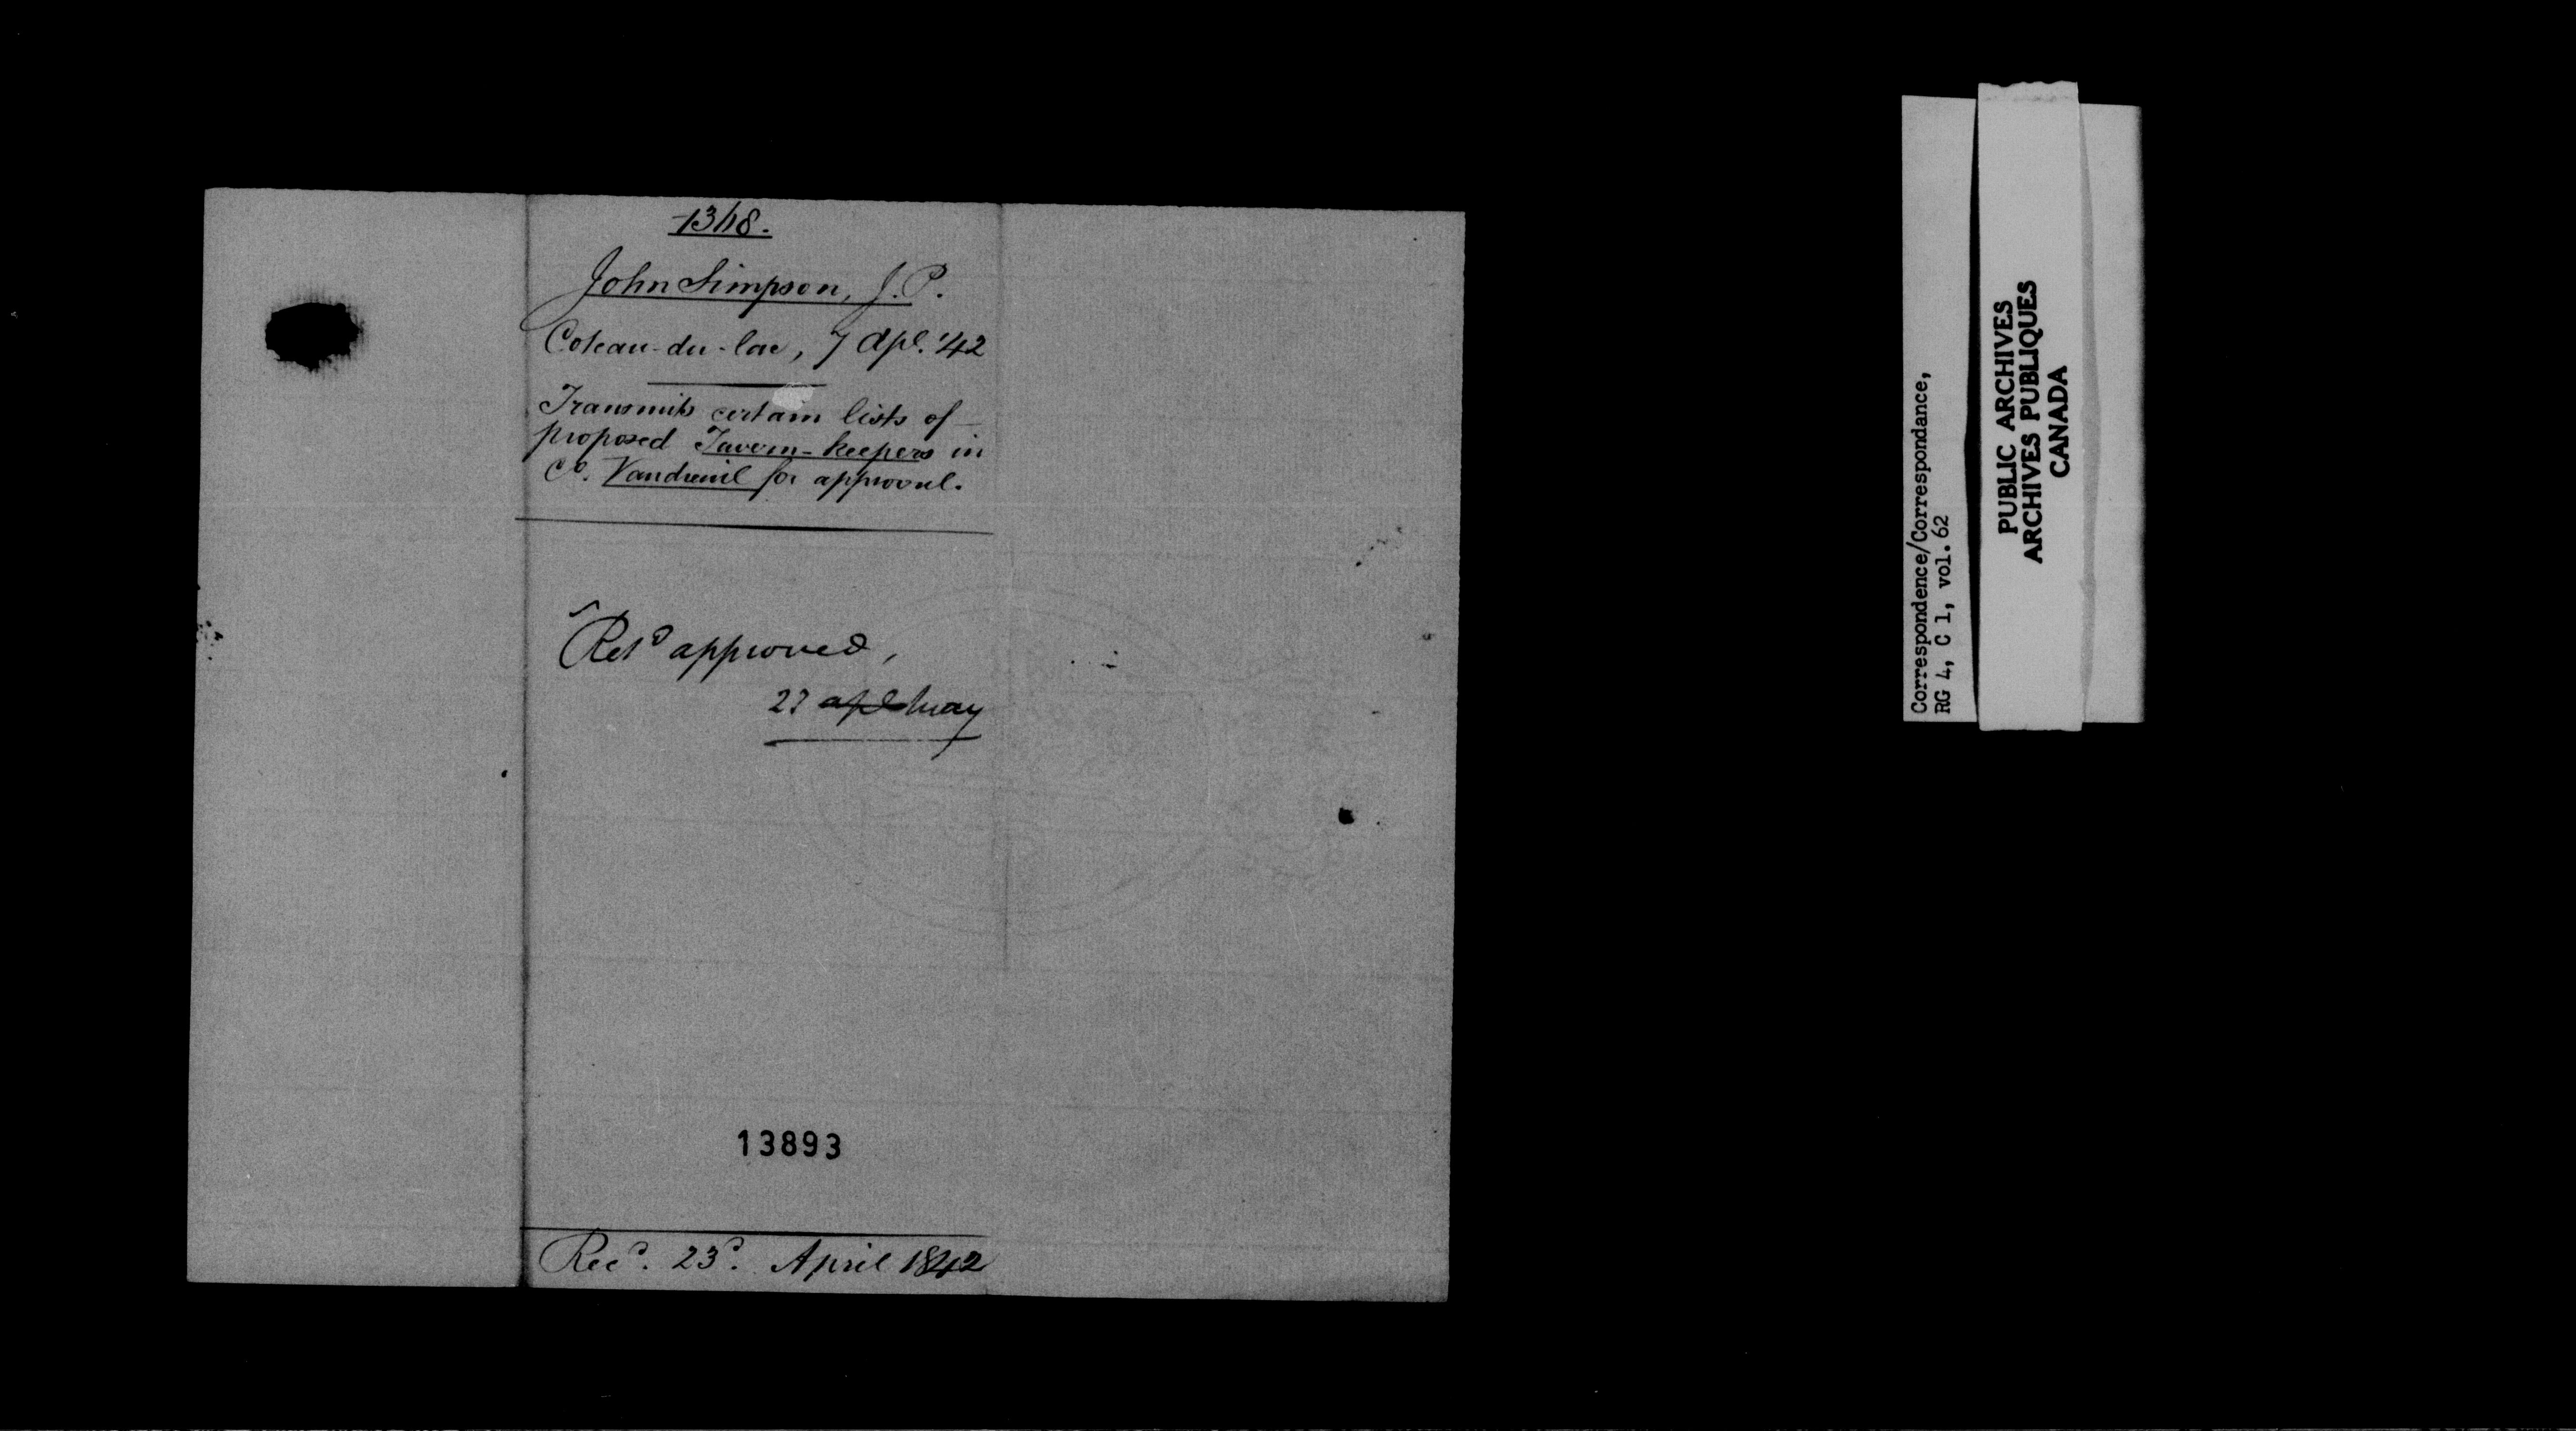 1348.
John Simpson, J. P.
Coteau-du-lac, 7 Apl. '42
Transmits certain lists of
proposed Tavern-keepers in
Co. Vaudreuil for approval.
Retd approved,
23 apl May
13893
Recd. 23d. April 1842
Correspondence/Correspondance,
RG 4, C 1, vol. 62
PUBLIC ARCHIVES
ARCHIVES PUBLIQUES
CANADA